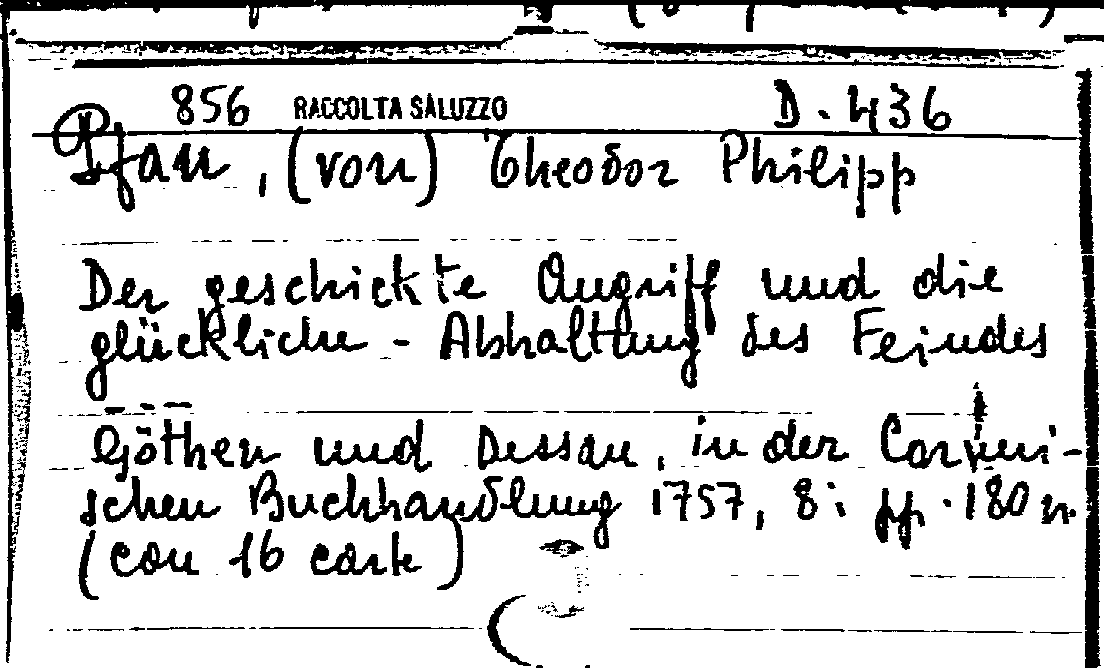 856 RACCOLTA SALUZZO D. 436
Pfau, (von) Theodor Philipp
Der geschickte Angriff und die
glückliche - Abhaltung des Feindes
Göthen und Dessau, in der Cörnerischen
Buchhandlung 1757, 8: pp. 180 n.
(con 16 carte)